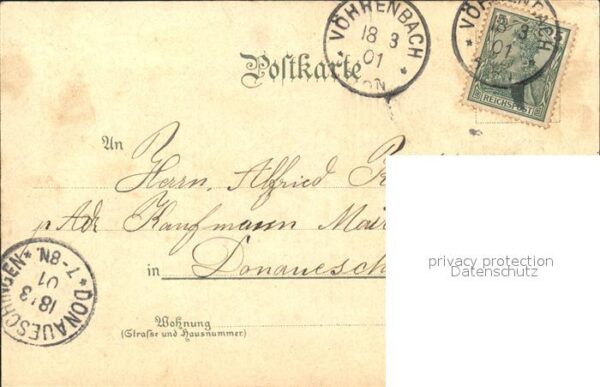 VÖHRENBACH
18 3
01
VÖHRENBACH
18 3
01
REICHSPOST
Postkarte
An
Herrn Alfried
p Adr Kaufmann Mai
in Donauesch
privacy protection
Datenschutz
DONAUESCHINGEN
18 3
01
7-8N.
Wohnung
(Straße und Hausnummer)